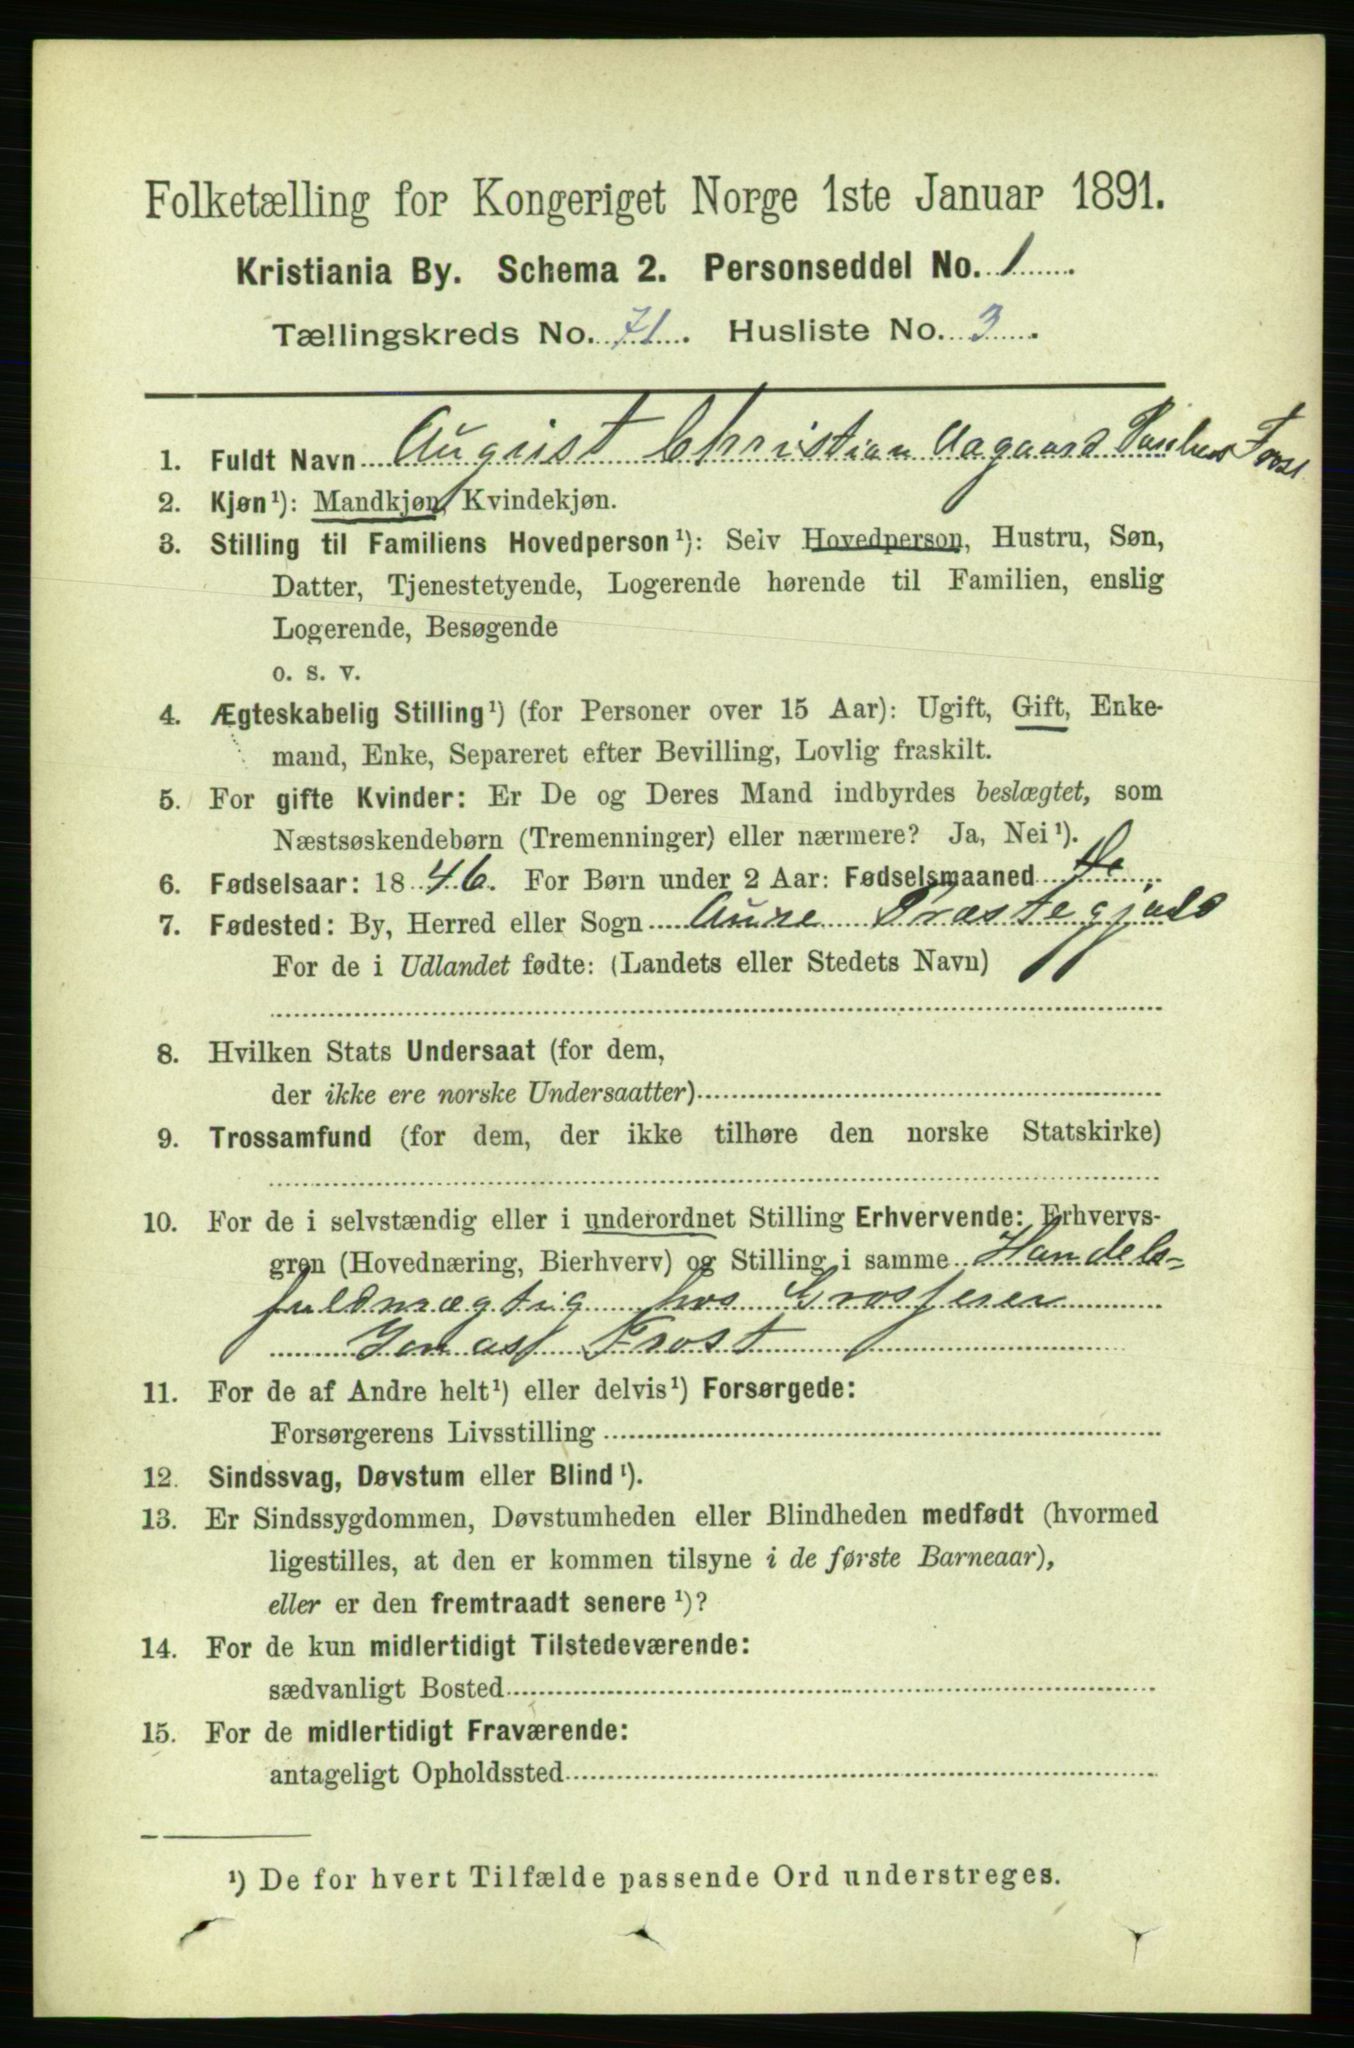 Folketælling for Kongeriget Norge 1ste Januar 1891.
Kristiania By. Schema 2. Personseddel No. 1
Tællingskreds No. 71. Husliste No. 3.
1. Fuldt Navn August Christian Aagaard
2. Kjøn¹): Mandkjøn, Kvindekjøn.
3. Stilling til Familiens Hovedperson¹): Selv Hovedperson, Hustru, Søn,
Datter, Tjenestetyende, Logerende hørende til Familien, enslig
Logerende, Besøgende
o. s. v.
4. Ægteskabelig Stilling¹) (for Personer over 15 Aar): Ugift, Gift, Enke-
mand, Enke, Separeret efter Bevilling, Lovlig fraskilt.
5. For gifte Kvinder: Er De og Deres Mand indbyrdes beslægtet, som
Næstsøskendebørn (Tremenninger) eller nærmere? Ja, Nei¹).
6. Fødselsaar: 1846. For Børn under 2 Aar: Fødselsmaaned
7. Fødested: By, Herred eller Sogn Aure Præstegjeld
For de i Udlandet fødte: (Landets eller Stedets Navn)
8. Hvilken Stats Undersaat (for dem,
der ikke ere norske Undersaatter)
9. Trossamfund (for dem, der ikke tilhøre den norske Statskirke)
10. For de i selvstændig eller i underordnet Stilling Erhvervende: Erhvervs-
gren (Hovednæring, Bierhverv) og Stilling i samme Handels-
fuldmægtig hos Grosserer
Jonas Frost
11. For de af Andre helt¹) eller delvis¹) Forsørgede:
Forsørgerens Livsstilling
12. Sindssvag, Døvstum eller Blind¹).
13. Er Sindssygdommen, Døvstumheden eller Blindheden medfødt (hvormed
ligestilles, at den er kommen tilsyne i de første Barneaar),
eller er den fremtraadt senere¹)?
14. For de kun midlertidigt Tilstedeværende:
sædvanligt Bosted
15. For de midlertidigt Fraværende:
antageligt Opholdssted
¹) De for hvert Tilfælde passende Ord understreges.